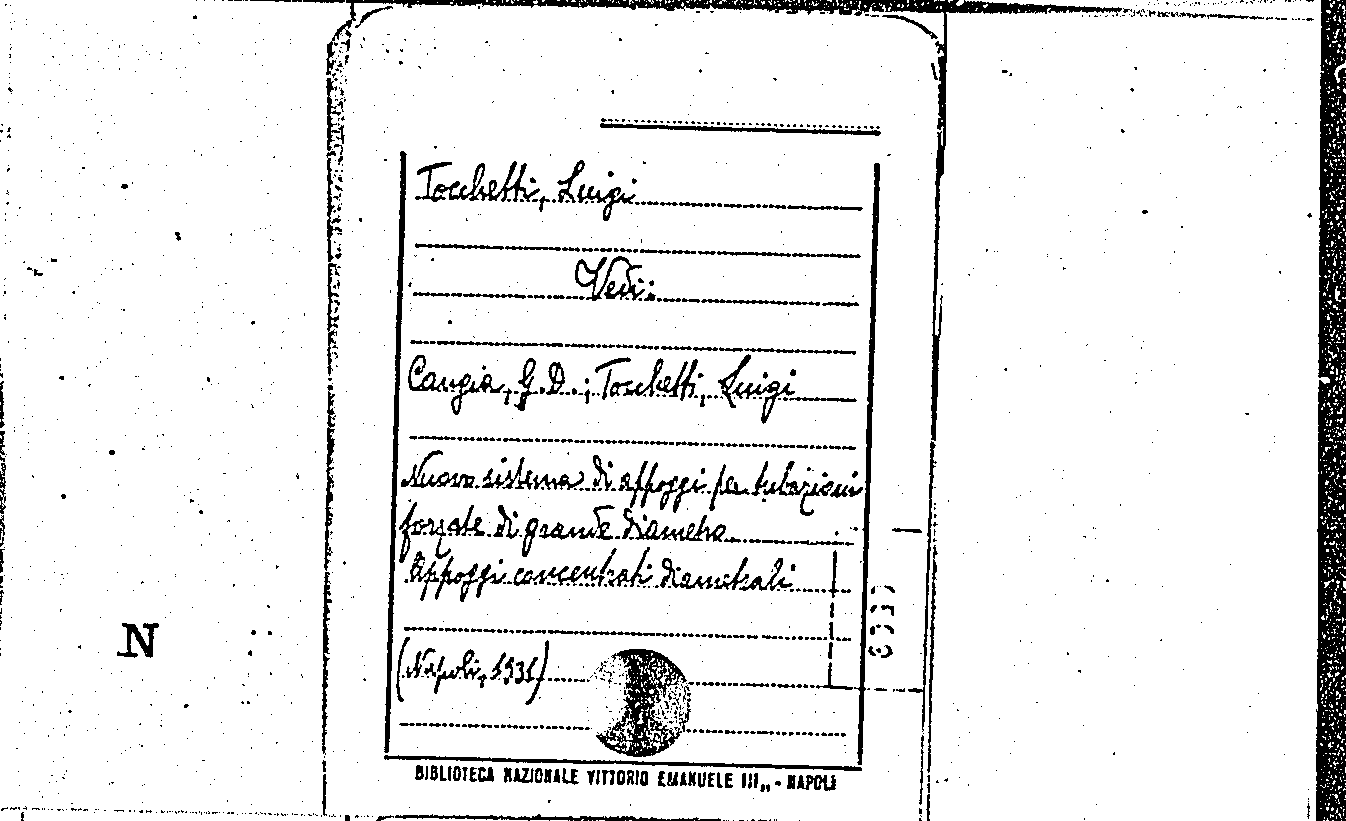 Tocchetti, Luigi
Vedi:
Cangia, G.D.; Tocchetti, Luigi
Nuovo sistema di appoggi per tubazioni
forzate di grande diametro.
Appoggi concentrati diametrali
(Napoli, 1931)
N
BIBLIOTECA NAZIONALE VITTORIO EMANUELE III,, - NAPOLI